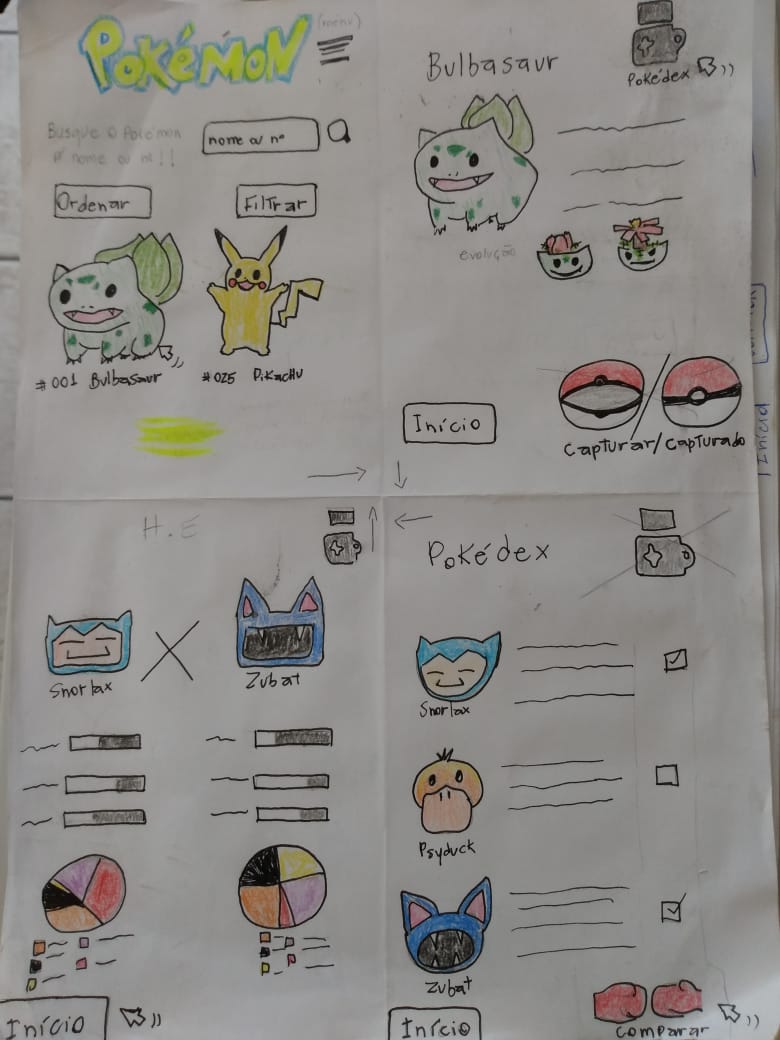 POKéMON
(menu)
Busque o Pokémon
p/ nome ou nº!!
nome ou nº
Ordenar
Filtrar
#001 Bulbasaur
#025 Pikachu
Bulbasaur
Pokédex
evolução
Início
Capturar/Capturado
H.E
Snorlax
X
Zubat
Início
Pokédex
Snorlax
Psyduck
Zubat
Início
Comparar
Início